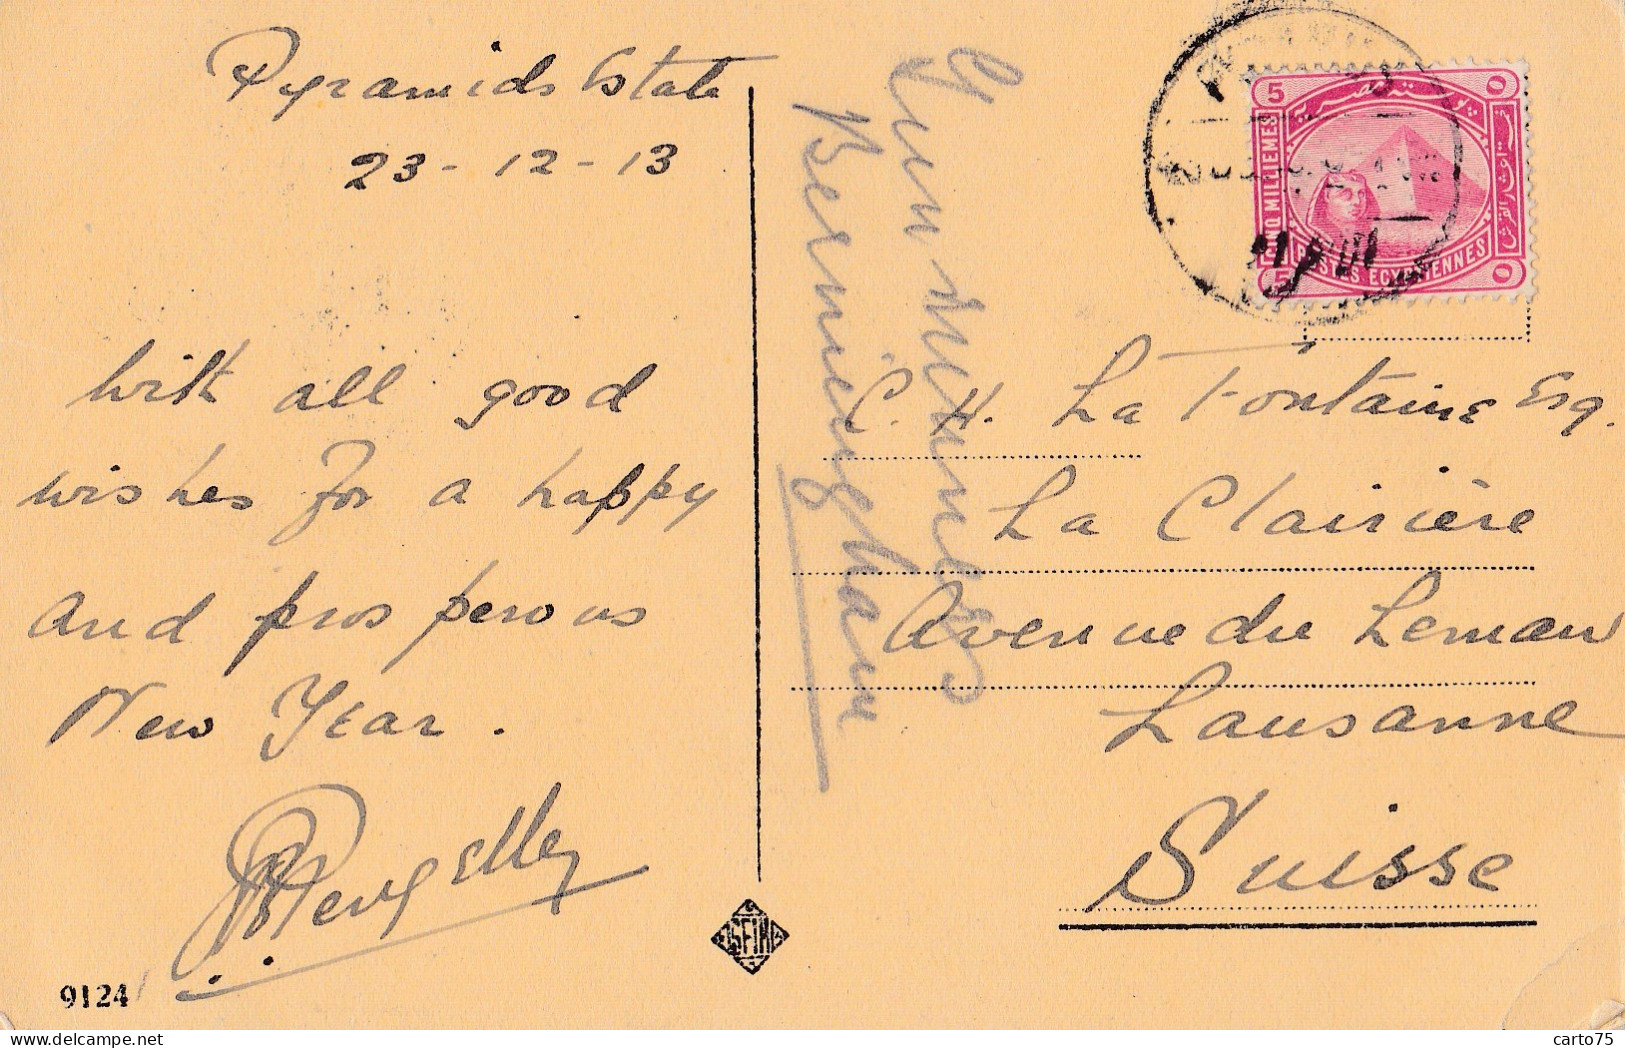 Pyramids Estate
23-12-13
With all good
wishes for a happy
and prosperous
New Year.
9124
SFIM
Bermingham
5
CINQ MILLIEMES
POSTES EGYPTIENNES
5
C. H. La Fontaine Esq.
La Clairière
Avenue du Leman
Lausanne
Suisse
carto75